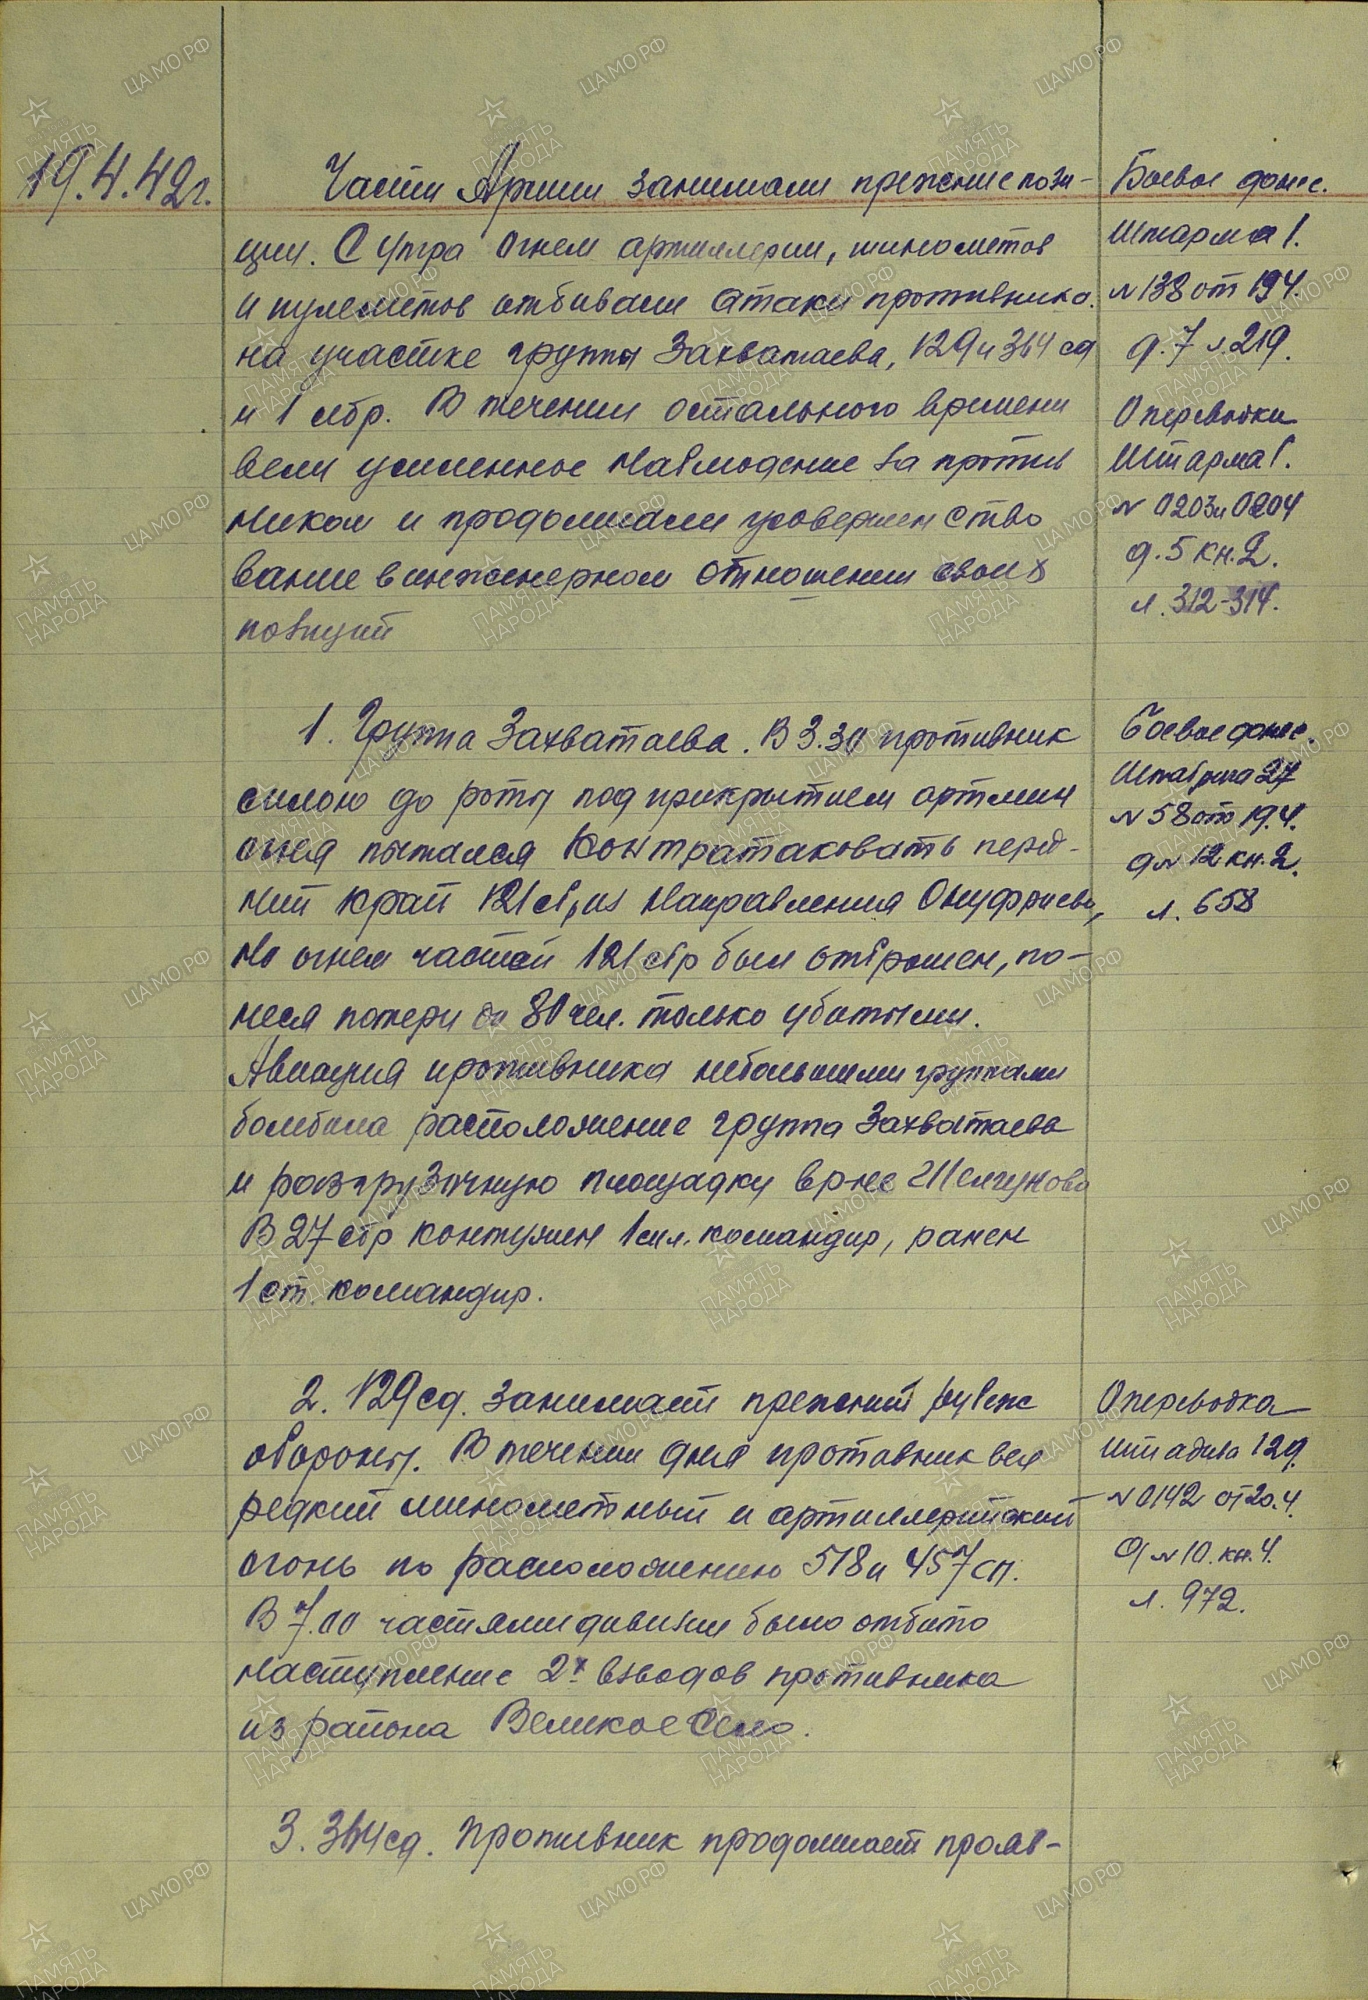 19.4.42г.
Части Армии занимали прежние пози-
ции. С утра огнем артиллерии, минометов
и пулеметов отбивали атаки противника
на участке группы Захватаева, 129 и 364 сд
и 1 сбр. В течении остального времени
вели усиленное наблюдение за против
ником и продолжали усовершенство
вание в инженерном отношении своих
позиций
Боевое донес.
Штарма 1.
№ 138 от 19.4.
д. 7 л. 219.
Оперсводки
Штарма 1.
№ 0203 и 0204
д. 5 кн. 2.
л. 312-314.
1. Группа Захватаева. В 3.30 противник
силою до роты под прикрытием артмин
огня пытался контратаковать перед-
ний край 121 сбр из направления Онуфриево,
но огнем частей 121 сбр был отброшен, по-
неся потери до 80 чел. только убитыми.
Авиация противника небольшими группами
бомбила расположение группа Захватаева
и разгрузочную площадку в р-не Шелгуново
В 27 сбр контужен 1 мл. командир, ранен
1 ст. командир.
Боевое донес.
Штабрига 27
№ 58 от 19.4.
д № 12 кн. 2.
л. 658
2. 129 сд. занимает прежний рубеж
обороны. В течении дня противник вел
редкий минометный и артиллерийский
огонь по расположению 518 и 457 сп.
В 7.00 частями дивизии было отбито
наступление 2х взводов противника
из района Великое Село.
Оперсводка
штадива 129.
№ 0142 от 20.4.
д № 10. кн. 4.
л. 972.
3. 364 сд. Противник продолжает прояв-
ЦАМО.РФ
ПАМЯТЬ
НАРОДА